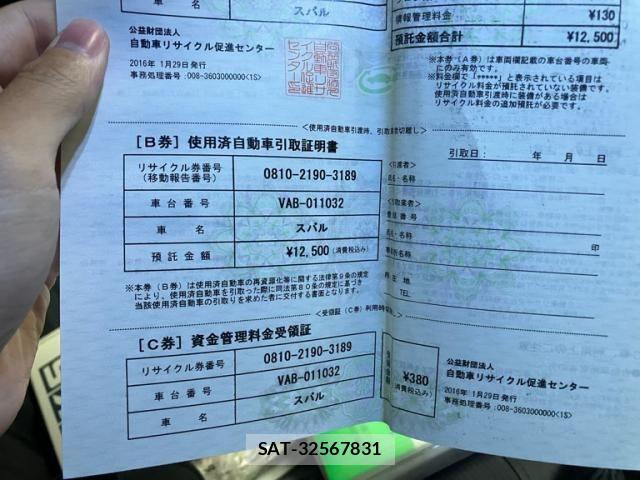 車 名 スバル
情報管理料金 ¥130
預託金額合計 ¥12,500
公益財団法人
自動車リサイクル促進センター
2016年 1月29日 発行
事務処理番号 :008-3603000000<1S>
※本券（A券）は車両欄記載の車台番号の車両
にのみ有効です。
※料金欄で「*****」と表示されている項目は
リサイクル料金が預託されていない装備です。
使用済自動車引渡時に装備がある場合は
リサイクル料金の追加預託が必要です。
<使用済自動車引渡時、引取業者切離し>
[B券] 使用済自動車引取証明書
引取日： 年 月 日
リサイクル券番号
(移動報告番号) 0810-2190-3189
車台番号 VAB-011032
車 名 スバル
預託金額 ¥12,500 (消費税込み)
<引渡者>
氏名・名称
<引取業者>
登録番号
氏名・名称
事業所名称 印
所在地
TEL
※本券（B券）は使用済自動車の再資源化等に関する法律第9条の規定
により、使用済自動車を引取った際に同法第80条の規定に基づき
当該使用済自動車の引取りを求めた者に交付する書面となります。
<受領証（C券）利用時切離し>
[C券] 資金管理料金受領証
リサイクル券番号 0810-2190-3189
車台番号 VAB-011032
車 名 スバル
¥380
(消費税込み)
公益財団法人
自動車リサイクル促進センター
2016年 1月29日 発行
事務処理番号 :008-3603000000<1S>
SAT-32567831